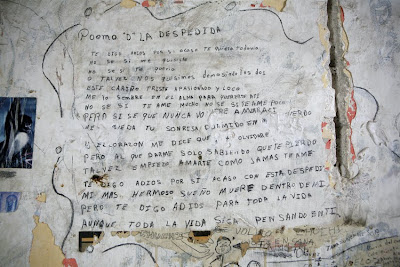 Poema "D" LA DESPEDIDA
TE DIGO ADIOS POR SI ACASO TE QUIERO TODAVIA
NO SE SI ME
NO SE SI TE QUERIA
O TALVEZ NOS QUISIMOS DEMASIADO LOS DOS
ESTE CARIÑO TRISTE APASIONADO Y LOCO
ME LO SEMBRE EN EL ALMA PARA QUERERTE A TI
NO SE SI TE AME MUCHO NO SE SI TE AME POCO
PERO SI SE QUE NUNCA VOLVERE AMAR ASI
ME QUEDA TU SONRISA DORMIDO EN MI
Y EL CORAZON ME DICE QUE NO OLVIDARE
PERO AL QUEDARME SOLO SABIENDO QUE TE PIERDO
TALVEZ EMPIEZO AMARTE COMO JAMAS TE AME
TE DIGO ADIOS POR SI ACASO CON ESTA DESPEDI
MI MAS HERMOSO SUEÑO MUERE DENTRO DE MI
PERO TE DIGO ADIOS PARA TODA LA VIDA
AUNQUE TODA LA VIDA SIGA PENSANDO EN TI